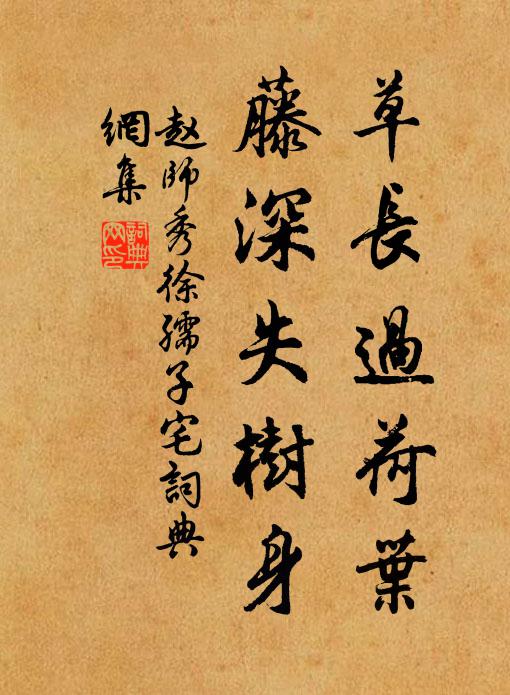 草長過荷葉
藤深失樹身
赵師秀徐孺子宅詞典
網集
詞典網印